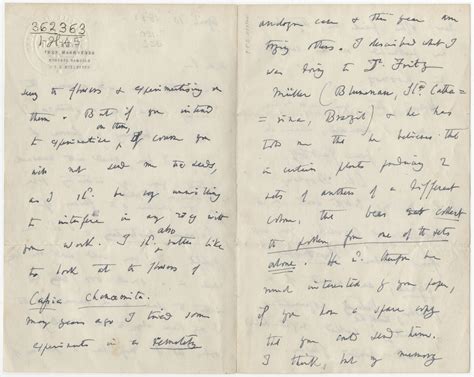 362363
see to flowers & experimentising on
them. But if you intend
on them
to experimentise, of course you
will not send me the seeds,
as I shd. be very unwilling
to interfere in any way with
your work. I shd. also rather like
to look at the flowers of
Cassia chamæcrista.
Many years ago I tried some
experiments in a remotely
analogous case & this year am
trying others. I described what I
was doing to Dr. Fritz
Müller (Blumenau, St. Catha-
rina, Brazil) & he has
told me that he believes that
in certain plants producing 2
sets of anthers of a different
colour, the bees collect
the pollen from one of the sets
alone. He wd. therefore be
much interested by your paper,
if you have a spare copy
that you could send him.
I think, but my memory